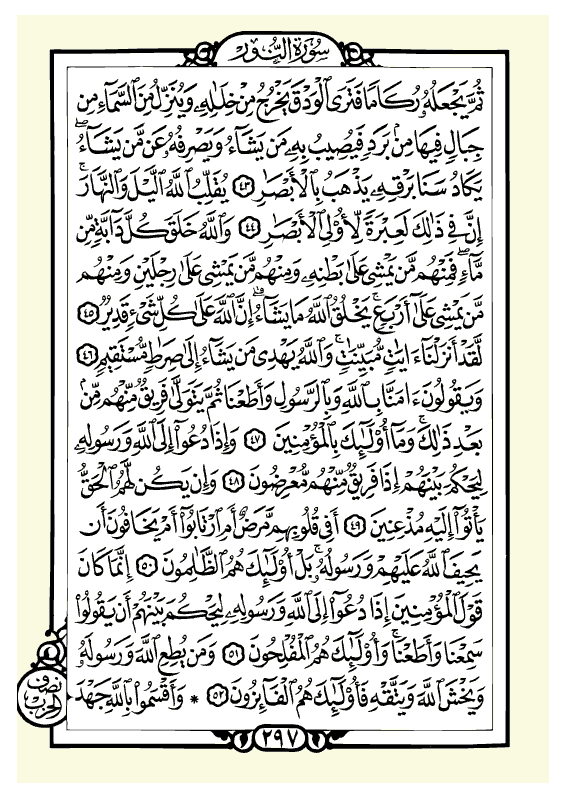 سُورَةُ النُّورِ
ثُمَّ يَجْعَلُهُۥ رُكَامًا فَتَرَى ٱلْوَدْقَ يَخْرُجُ مِنْ خِلَٰلِهِۦ وَيُنَزِّلُ مِنَ ٱلسَّمَآءِ مِن
جِبَالٍ فِيهَا مِنۢ بَرَدٍ فَيُصِيبُ بِهِۦ مَن يَشَآءُ وَيَصْرِفُهُۥ عَن مَّن يَشَآءُ ۖ
يَكَادُ سَنَا بَرْقِهِۦ يَذْهَبُ بِٱلْأَبْصَٰرِ ٤٣ يُقَلِّبُ ٱللَّهُ ٱلَّيْلَ وَٱلنَّهَارَ ۚ
إِنَّ فِى ذَٰلِكَ لَعِبْرَةً لِّأُو۟لِى ٱلْأَبْصَٰرِ ٤٤ وَٱللَّهُ خَلَقَ كُلَّ دَآبَّةٍ مِّن
مَّآءٍ ۖ فَمِنْهُم مَّن يَمْشِى عَلَىٰ بَطْنِهِۦ وَمِنْهُم مَّن يَمْشِى عَلَىٰ رِجْلَيْنِ وَمِنْهُم
مَّن يَمْشِى عَلَىٰٓ أَرْبَعٍ ۚ يَخْلُقُ ٱللَّهُ مَا يَشَآءُ ۚ إِنَّ ٱللَّهَ عَلَىٰ كُلِّ شَىْءٍ قَدِيرٌ ٤٥
لَّقَدْ أَنزَلْنَآ ءَايَٰتٍ مُّبَيِّنَٰتٍ ۚ وَٱللَّهُ يَهْدِى مَن يَشَآءُ إِلَىٰ صِرَٰطٍ مُّسْتَقِيمٍ ٤٦
وَيَقُولُونَ ءَامَنَّا بِٱللَّهِ وَبِٱلرَّسُولِ وَأَطَعْنَا ثُمَّ يَتَوَلَّىٰ فَرِيقٌ مِّنْهُم مِّنۢ
بَعْدِ ذَٰلِكَ ۚ وَمَآ أُو۟لَٰٓئِكَ بِٱلْمُؤْمِنِينَ ٤٧ وَإِذَا دُعُوٓا۟ إِلَى ٱللَّهِ وَرَسُولِهِۦ
لِيَحْكُمَ بَيْنَهُمْ إِذَا فَرِيقٌ مِّنْهُم مُّعْرِضُونَ ٤٨ وَإِن يَكُن لَّهُمُ ٱلْحَقُّ
يَأْتُوٓا۟ إِلَيْهِ مُذْعِنِينَ ٤٩ أَفِى قُلُوبِهِم مَّرَضٌ أَمِ ٱرْتَابُوٓا۟ أَمْ يَخَافُونَ أَن
يَحِيفَ ٱللَّهُ عَلَيْهِمْ وَرَسُولُهُۥ ۚ بَلْ أُو۟لَٰٓئِكَ هُمُ ٱلظَّٰلِمُونَ ٥٠ إِنَّمَا كَانَ
قَوْلَ ٱلْمُؤْمِنِينَ إِذَا دُعُوٓا۟ إِلَى ٱللَّهِ وَرَسُولِهِۦ لِيَحْكُمَ بَيْنَهُمْ أَن يَقُولُوا۟
سَمِعْنَا وَأَطَعْنَا ۚ وَأُو۟لَٰٓئِكَ هُمُ ٱلْمُفْلِحُونَ ٥١ وَمَن يُطِعِ ٱللَّهَ وَرَسُولَهُۥ
وَيَخْشَ ٱللَّهَ وَيَتَّقْهِ فَأُو۟لَٰٓئِكَ هُمُ ٱلْفَآئِزُونَ ٥٢ * وَأَقْسَمُوا۟ بِٱللَّهِ جَهْدَ
نصف
الحزب
٢٩٧